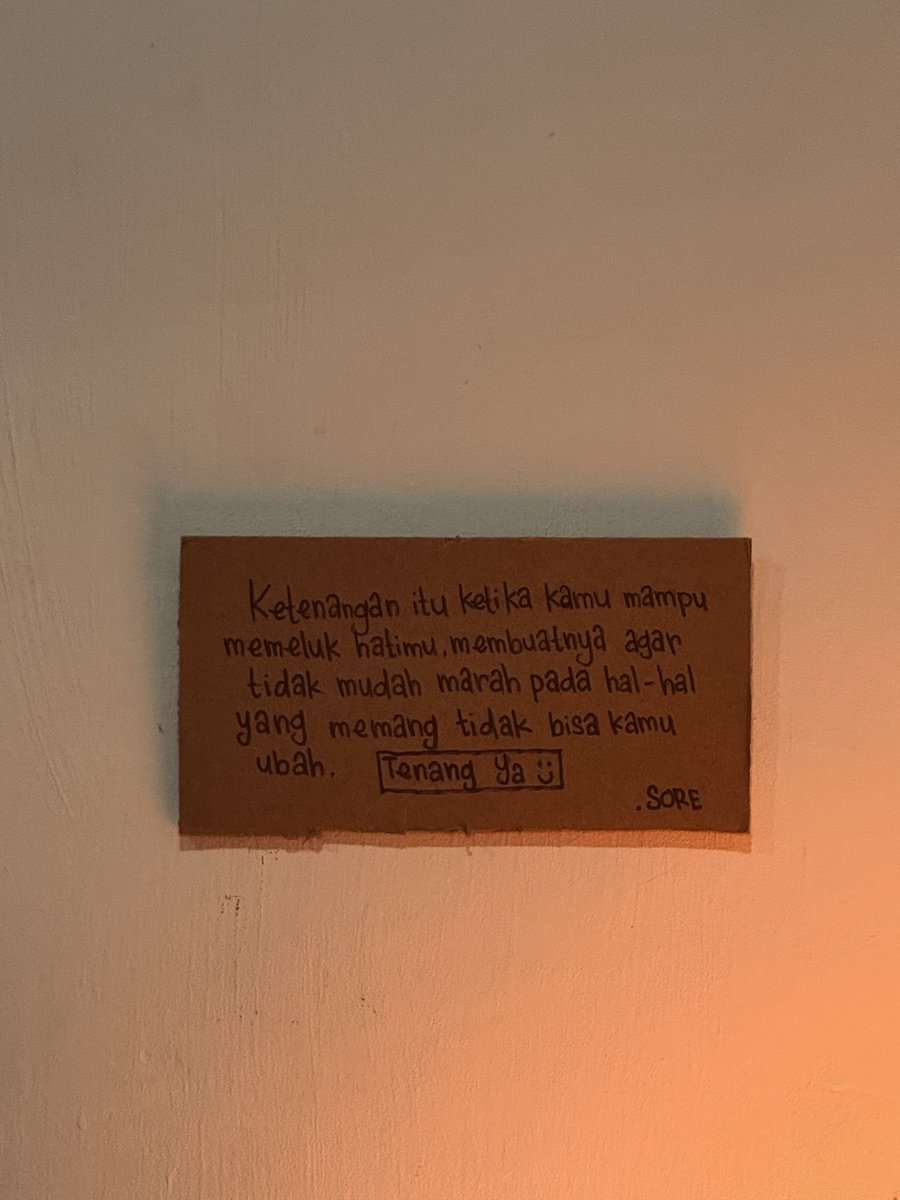 Ketenangan itu ketika kamu mampu
memeluk hatimu, membuatnya agar
tidak mudah marah pada hal-hal
yang memang tidak bisa kamu
ubah. Tenang Ya :)
.SORE